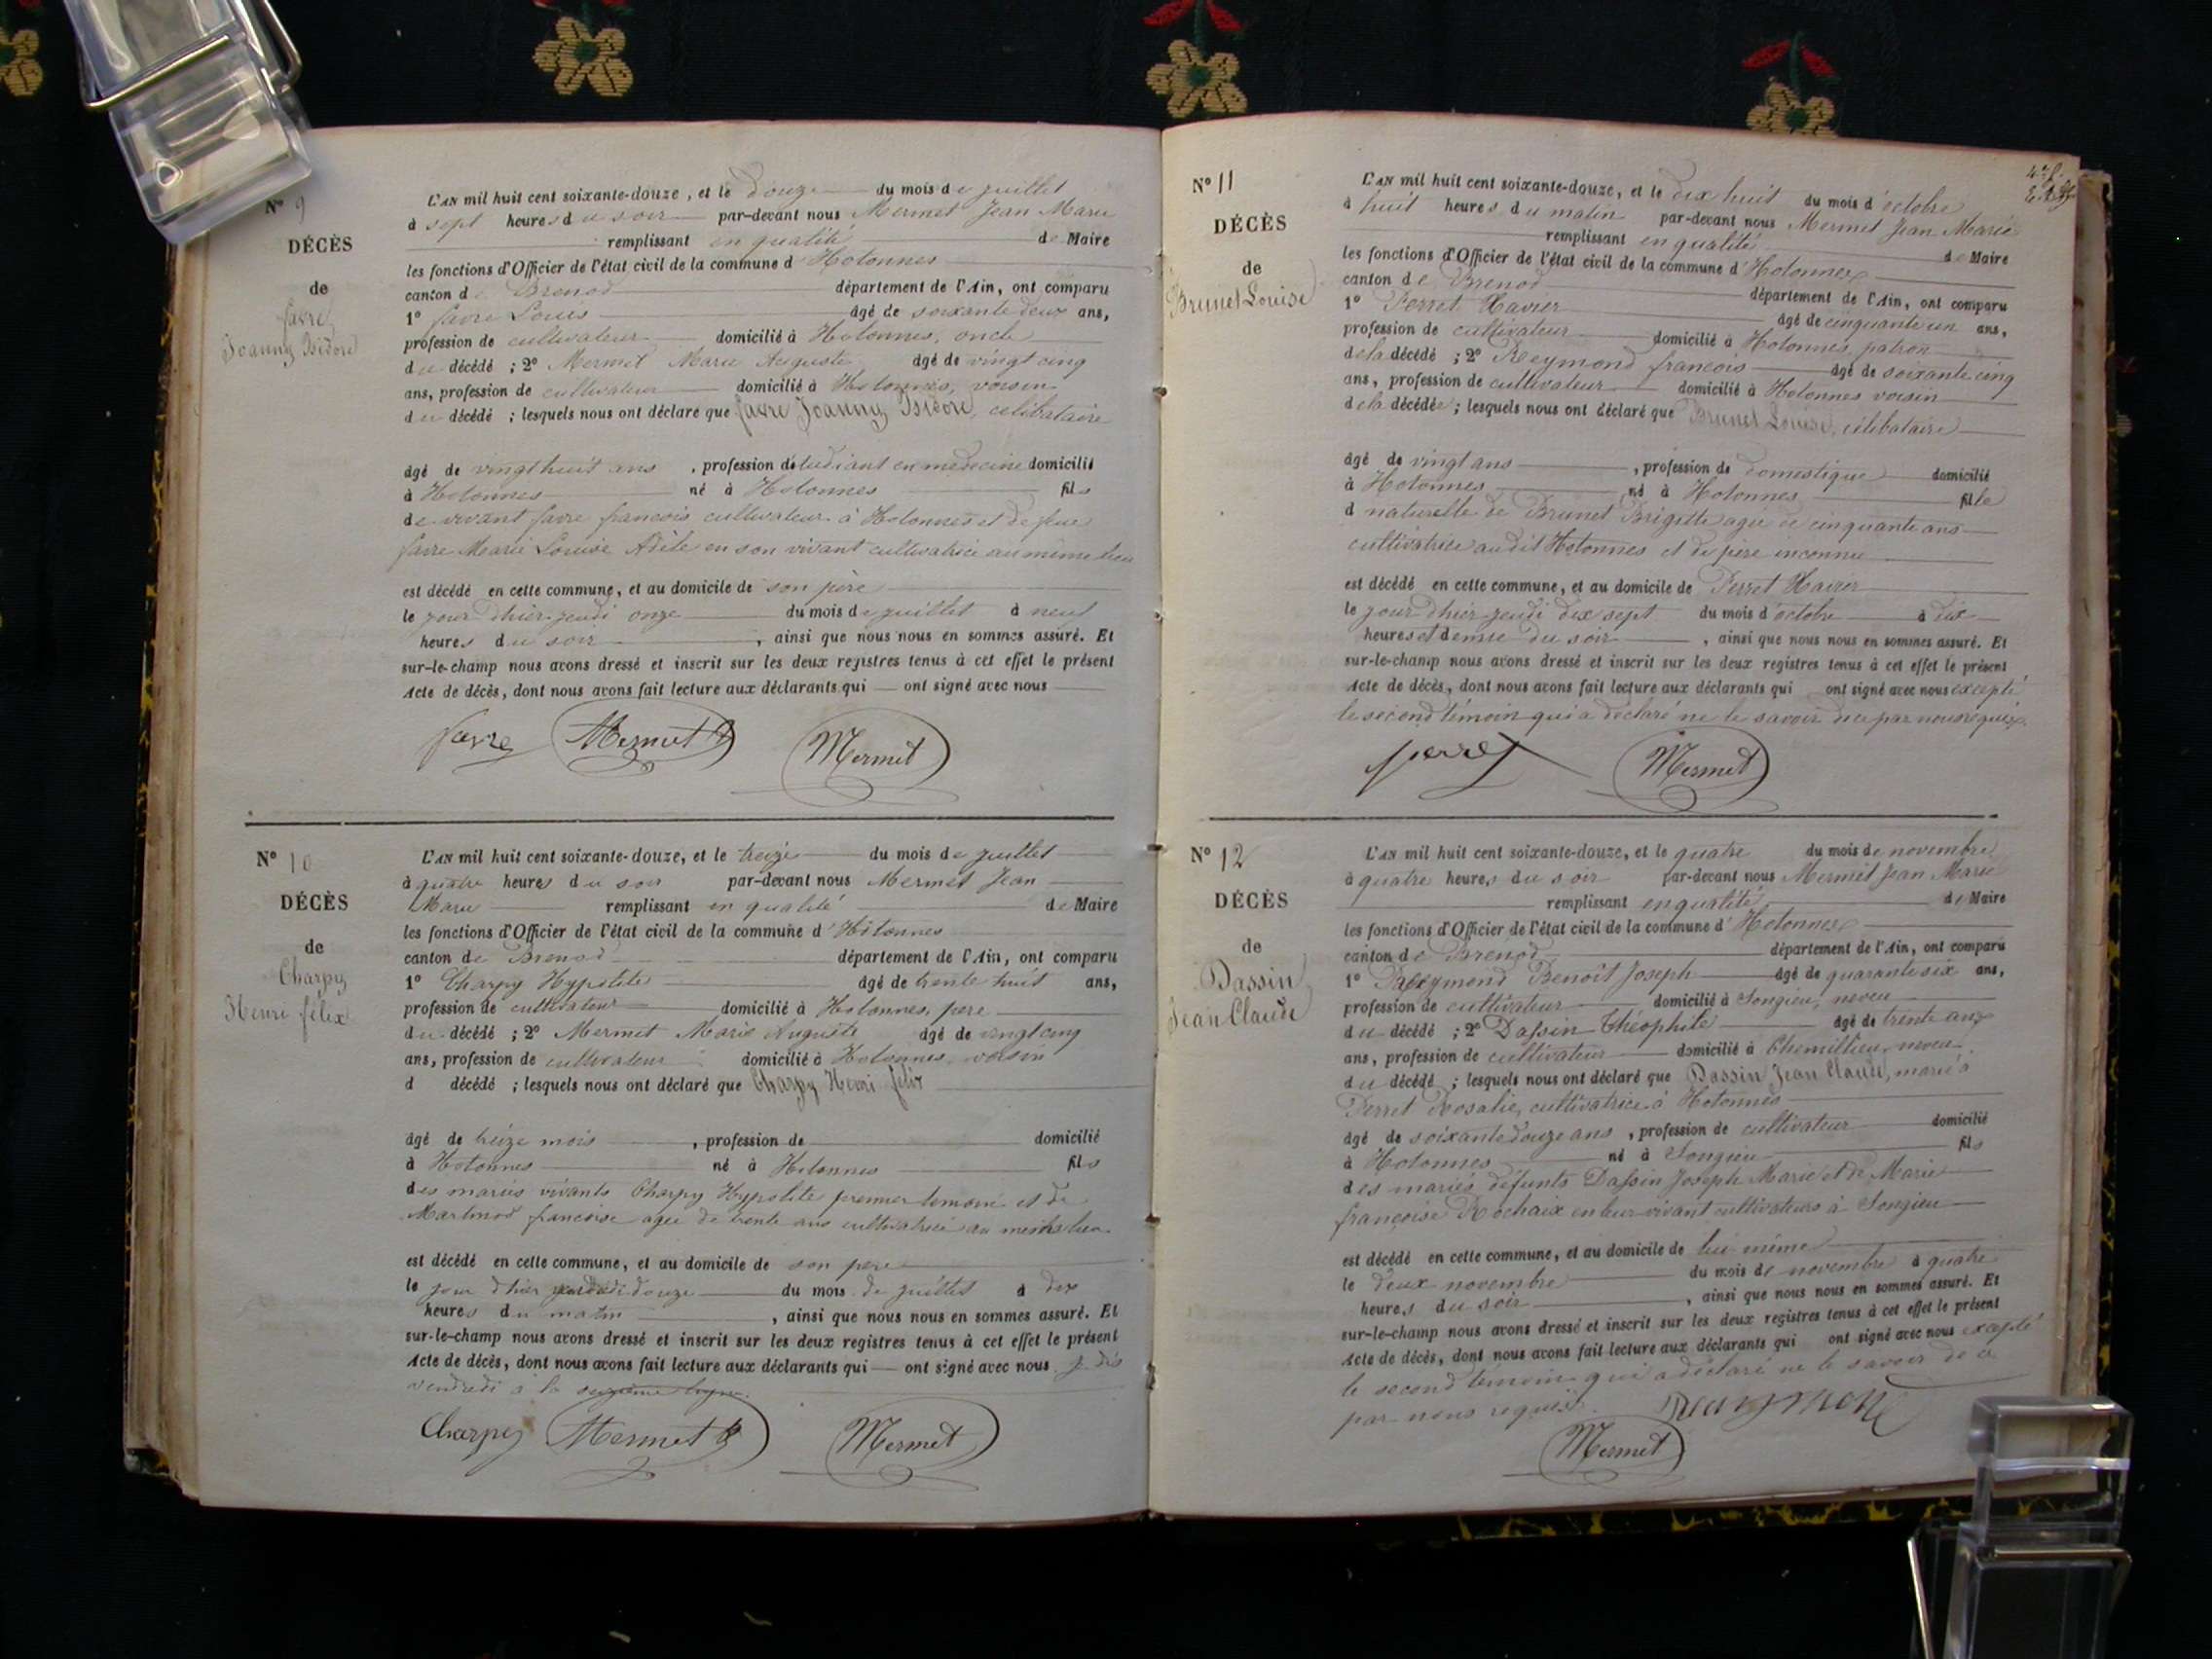 N° 9
DÉCÈS
de
favre
Joanny Isidore
L'AN mil huit cent soixante-douze, et le douze du mois de juillet
à sept heures du soir par-devant nous Mermet Jean Marie
remplissant en qualité de Maire
les fonctions d'Officier de l'état civil de la commune d'Hotonnes
canton de Brenod département de l'Ain, ont comparu
1° favre Louis âgé de soixante deux ans,
profession de cultivateur domicilié à Hotonnes, oncle
du décédé ; 2° Mermet Marie Auguste âgé de vingt cinq
ans, profession de cultivateur domicilié à Hotonnes, voisin
du décédé ; lesquels nous ont déclaré que favre Joanny Isidore, célibataire
âgé de vingt huit ans , profession d'étudiant en médecine domicilié
à Hotonnes né à Hotonnes fils
de vivant favre françois cultivateur à Hotonnes et de feue
favre Marie Louise Adèle en son vivant cultivatrice au même lieu
est décédé en cette commune, et au domicile de son père
le jour d'hier jeudi onze du mois de juillet à neuf
heures du soir , ainsi que nous nous en sommes assuré. Et
sur-le-champ nous avons dressé et inscrit sur les deux registres tenus à cet effet le présent
Acte de décès, dont nous avons fait lecture aux déclarants qui ont signé avec nous
favre Mermet Mermet
N° 10
DÉCÈS
de
Charpy
Henri félix
L'AN mil huit cent soixante-douze, et le treize du mois de juillet
à quatre heures du soir par-devant nous Mermet Jean
Marie remplissant en qualité de Maire
les fonctions d'Officier de l'état civil de la commune d'Hotonnes
canton de Brenod département de l'Ain, ont comparu
1° Charpy Hypolite âgé de trente huit ans,
profession de cultivateur domicilié à Hotonnes, père
du décédé ; 2° Mermet Marie Auguste âgé de vingt cinq
ans, profession de cultivateur domicilié à Hotonnes, voisin
d décédé ; lesquels nous ont déclaré que Charpy Henri félix
âgé de treize mois , profession de domicilié
à Hotonnes né à Hotonnes fils
des mariés vivants Charpy Hypolite premier temoin et de
Martinod francoise agée de trente ans cultivatrice au même lieu
est décédé en cette commune, et au domicile de son père
le jour d'hier douze du mois de juillet à dix
heures du matin , ainsi que nous nous en sommes assuré. Et
sur-le-champ nous avons dressé et inscrit sur les deux registres tenus à cet effet le présent
Acte de décès, dont nous avons fait lecture aux déclarants qui ont signé avec nous je dis
vendredi à la ligne.
Charpy Mermet Mermet
N° 11
DÉCÈS
de
Brunet Louise
L'AN mil huit cent soixante-douze, et le dix huit du mois d'octobre
à huit heures du matin par-devant nous Mermet Jean Marie
remplissant en qualité de Maire
les fonctions d'Officier de l'état civil de la commune d'Hotonnes
canton de Brenod département de l'Ain, ont comparu
1° Perret Xavier âgé de cinquante un ans,
profession de cultivateur domicilié à Hotonnes, patron
de la décédé ; 2° Reymond françois âgé de soixante cinq
ans, profession de cultivateur domicilié à Hotonnes voisin
de la décédée ; lesquels nous ont déclaré que Brunet Louise, célibataire
âgé de vingt ans , profession de domestique domicilié
à Hotonnes né à Hotonnes fille
d naturelle de Brunet Brigitte agée de cinquante ans
cultivatrice audit Hotonnes et de père inconnu
est décédé en cette commune, et au domicile de Perret Xavier
le jour d'hier jeudi dix sept du mois d'octobre à dix
heures et demie du soir , ainsi que nous nous en sommes assuré. Et
sur-le-champ nous avons dressé et inscrit sur les deux registres tenus à cet effet le présent
Acte de décès, dont nous avons fait lecture aux déclarants qui ont signé avec nous excepté
le second témoin qui a déclaré ne le savoir de ce par nous requis.
perret Mermet
N° 12
DÉCÈS
de
Dassin
Jean Claude
L'AN mil huit cent soixante-douze, et le quatre du mois de novembre
à quatre heures du soir par-devant nous Mermet Jean Marie
remplissant en qualité de Maire
les fonctions d'Officier de l'état civil de la commune d'Hotonnes
canton de Brenod département de l'Ain, ont comparu
1° Benoît Joseph âgé de quarante six ans,
profession de cultivateur domicilié à Songieu, neveu
du décédé ; 2° Dassin Théophile âgé de trente
ans, profession de cultivateur domicilié à Chemillieu neveu
du décédé ; lesquels nous ont déclaré que Dassin Jean Claude, marié à
Perret Rosalie, cultivatrice à Hotonnes
âgé de soixante douze ans , profession de cultivateur domicilié
à Hotonnes né à Songieu fils
des mariés défunts Dassin Joseph Marie et de Marie
françoise Rochaix en leur vivant cultivateurs à Songieu
est décédé en cette commune, et au domicile de lui même
le deux novembre du mois de novembre à quatre
heures du soir , ainsi que nous nous en sommes assuré. Et
sur-le-champ nous avons dressé et inscrit sur les deux registres tenus à cet effet le présent
Acte de décès, dont nous avons fait lecture aux déclarants qui ont signé avec nous excepté
le second témoin qui a déclaré ne le savoir de ce
par nous requis.
Mermet